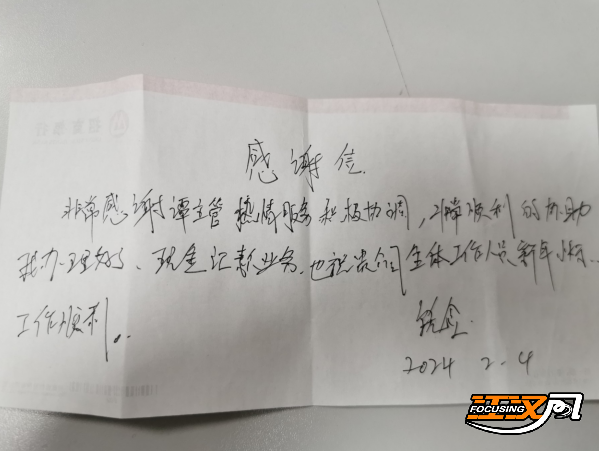 感谢信
非常感谢谭主管热情服务积极协调，非常顺利的协助
我办理好了、现金记款业务，也祝贵公司全体工作人员新年愉快..
工作顺利..
2024 2.4
FOCUSING
江汉风